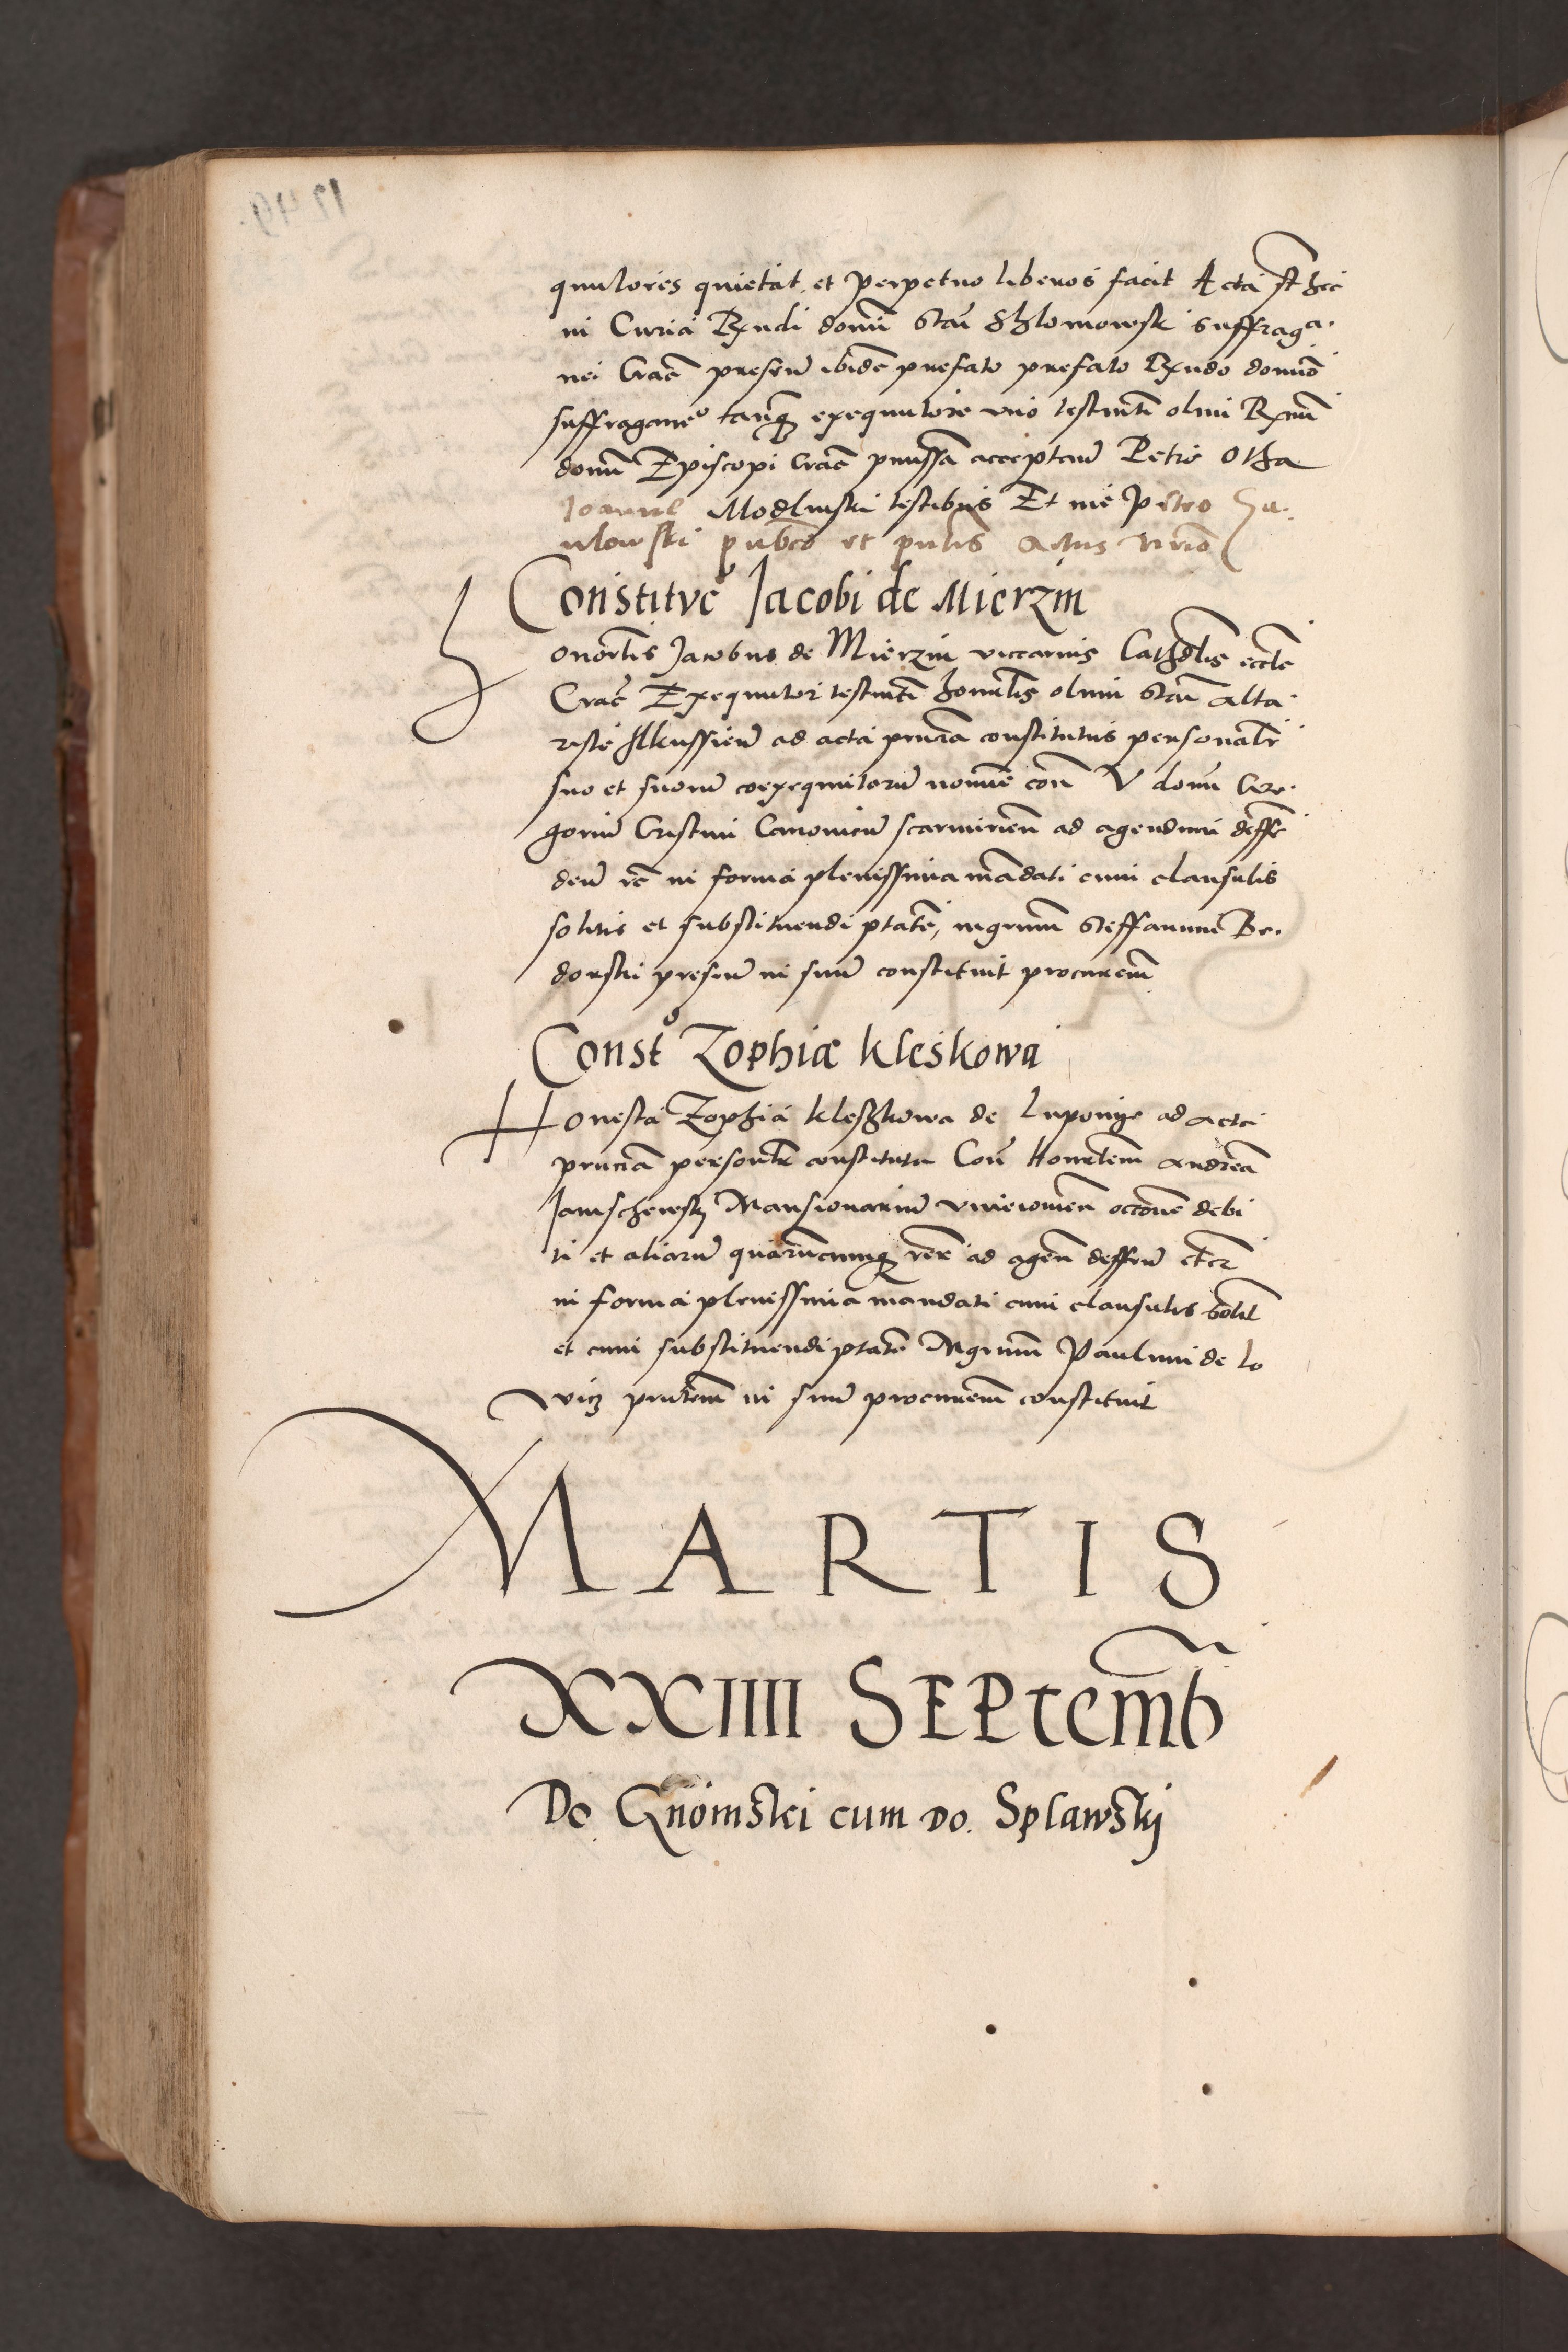 quutores quietat et perpetuo liberos facit Acta st hec
in Curia Rndi domi Stai Shlomowsk suffraga.
nei Crac presen ibide prefato prefato Rndo domino
suffraganeo tanq exequutore uno testmti olim Rmi
domi Episcopi Crac pmissa acceptan Petro Otha
Joanne Modlinski testibus Et me petro
pubco et pntis actus nrio
Constituc Jacobi de Mierzin
Honorblis Jacobus de Mierzin viccarius Cathedlis eccle
Crac Exequutor testmti honorblis olim Stai alta
riste Ilkussien ad acta pncia constitutus personalr
suo et suorum coexequutorum nomine con V domi Gre.
gorium Cristini Canonicum scarmirien ad agendum deffe
den rc in forma plenissima madati cum clausulis
solitis et substituendi ptate, mgrum Steffanum Be.
donski presen in suum constituit procurem
Consto Zophiæ Kleskowa
Honesta Zophia Kleshkowa de Luponije ad acta
pncia personlr constituta Con Honorblem Andrea
Mansionarium occone debi
ti et aliarum quarumcunq rerum ad agen deffen etc
in forma plenissima mandati cum clausulis solit
et cum substituendi ptate Mgrum Paulum de Lo
vicz pntem in suum procurem constituit
MARTIS
XXIIII SEPtemb
Do. Gnoinski cum Do. Splawskij